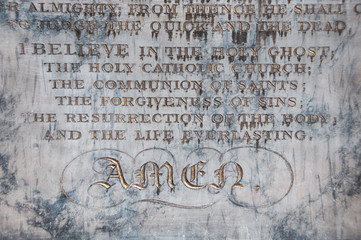 R ALMIGHTY; FROM THENCE HE SHALL
TO JUDGE THE QUICK AND THE DEAD
I BELIEVE IN THE HOLY GHOST;
THE HOLY CATHOLIC CHURCH;
THE COMMUNION OF SAINTS;
THE FORGIVENESS OF SINS
HE RESURRECTION OF THE BODY;
AND THE LIFE EVERLASTING
AMEN.